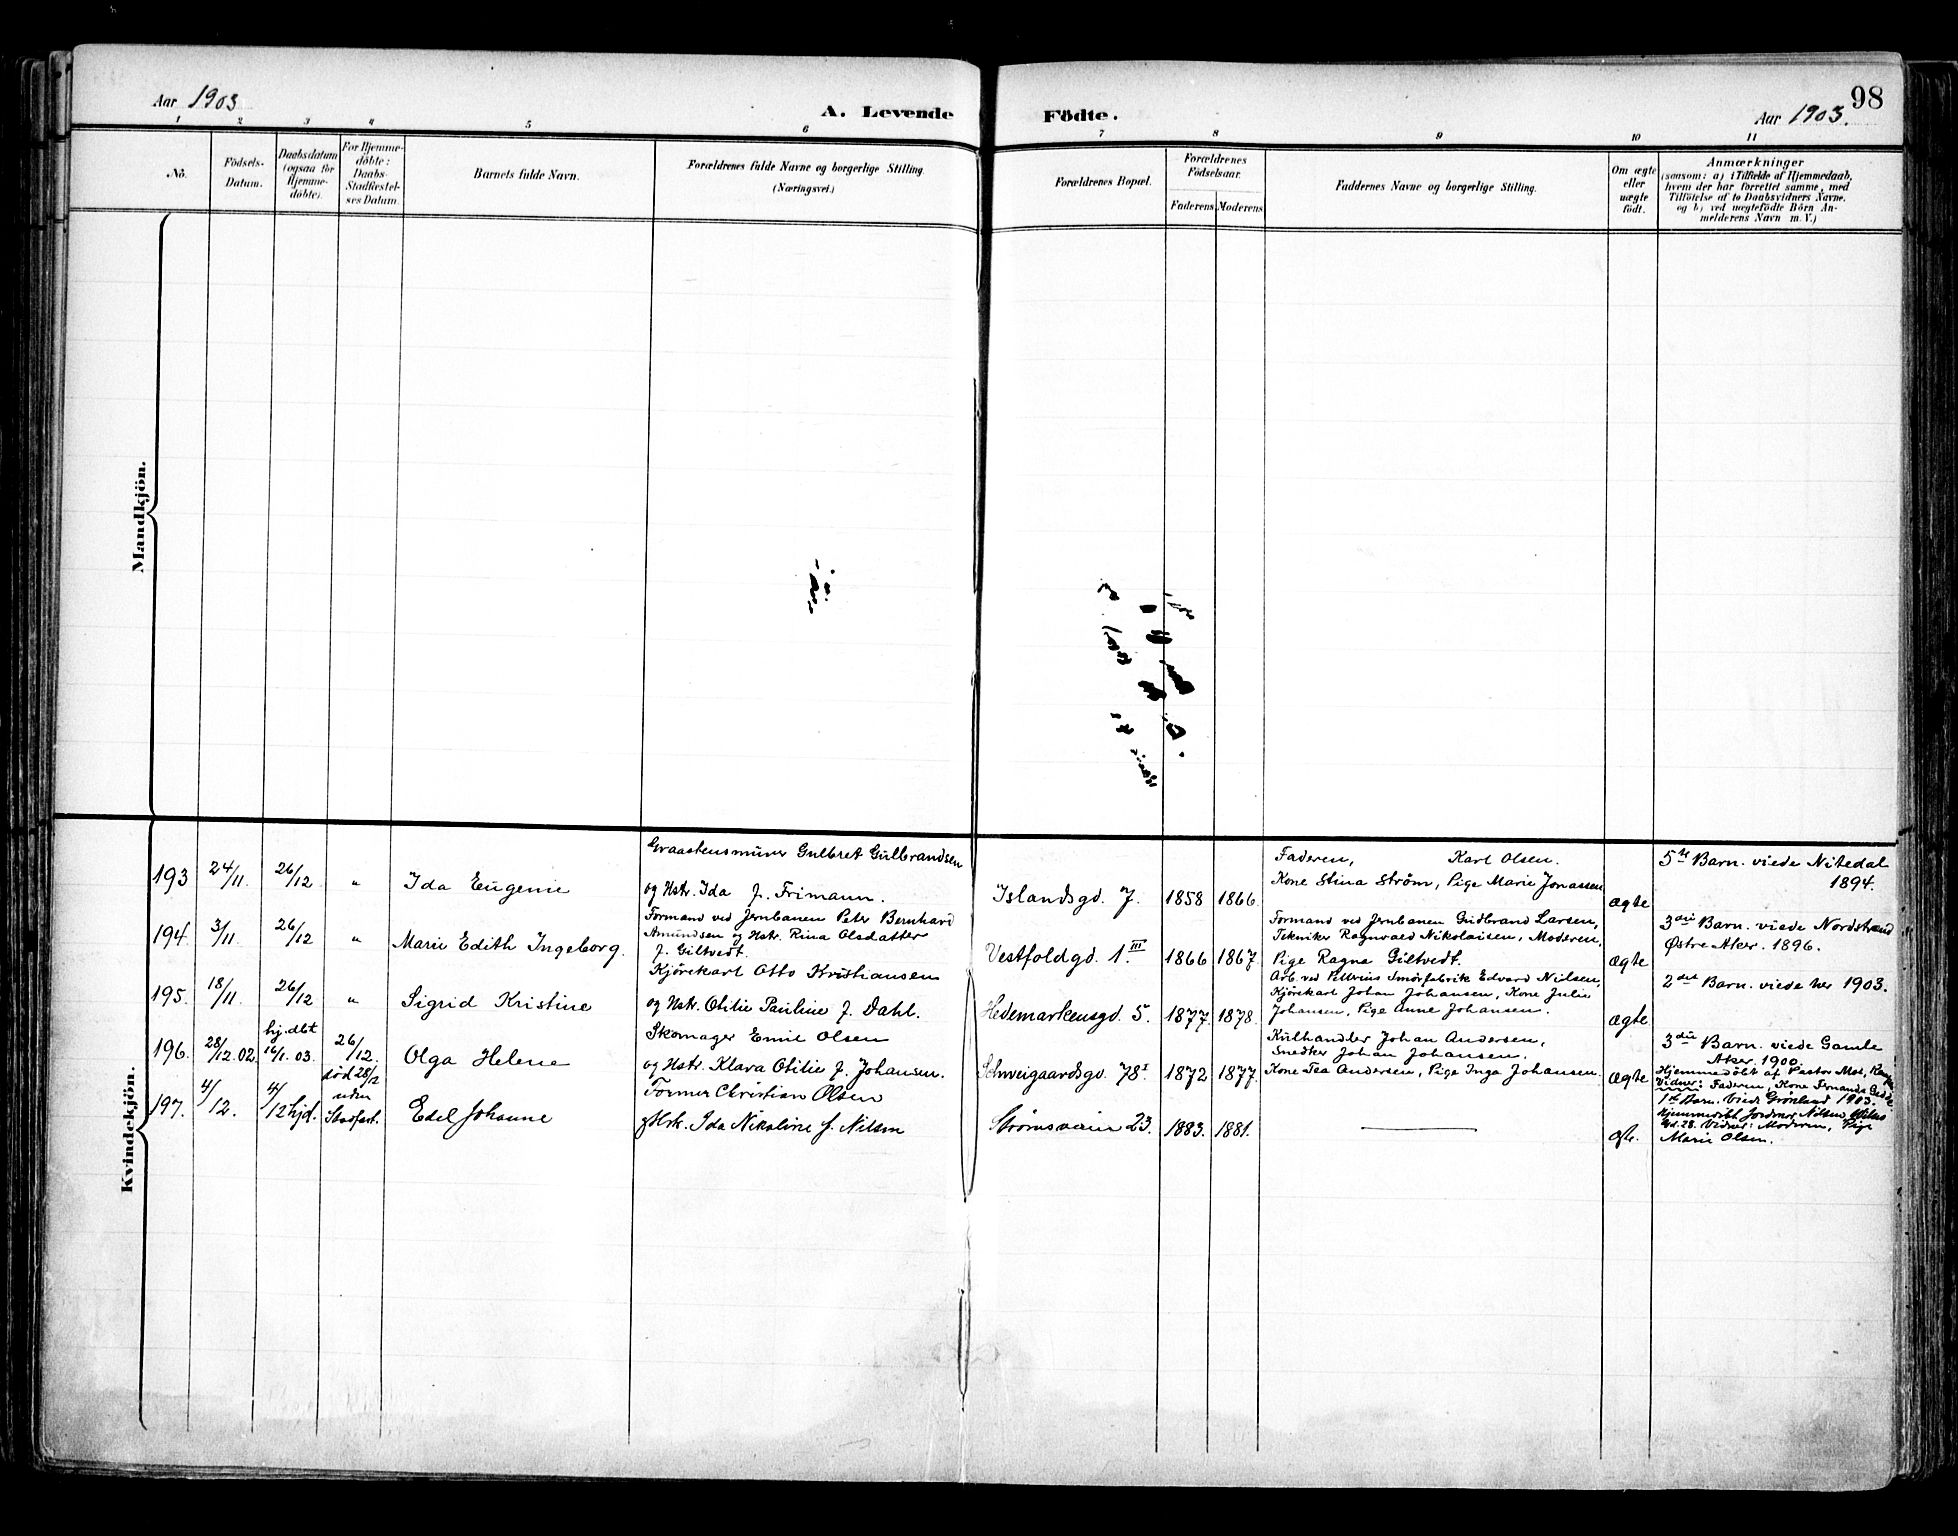 98
Aar 1903
A. Levende Födte.
Aar 1903.
1 2 3 4 5 6 7 8 9 10 11
No.
Födsels-
Datum.
Daabsdatum
(ogsaa for
Hjemme-
döbte).
For Hjemme-
döbte:
Daabs-
Stadfæstel-
ses Datum.
Barnets fulde Navn.
Forældrenes fulde Navne og borgerlige Stilling.
(Næringsvei.)
Forældrenes Bopæl.
Forældrenes
Födselsaar.
Faderens Moderens
Faddernes Navne og borgerlige Stilling.
Om ægte
eller
uægte
født.
Anmærkninger
(saasom: a) i Tilfælde af Hjemmedaab,
hvem der har forrettet samme, med
Tilföielse af to Daabsvidners Navne.
og b) ved uægtefödte Börn An-
melderens Navn m. V.)
Mandkjön.
Kvindekjön.
193 24/11. 26/12. " Ida Eugenie
Graastensmurer Gulbret Gulbrandsen
og Hstr. Ida f. Frimann.
Islandsgd. 7. 1858 1866.
Faderen, Karl Olsen.
Kone Stina Ström, Pige Marie Jonassen
ægte
5te Barn. viede Nitedal
1894.
194 3/11. 26/12 " Marie Edith Ingeborg.
Formand ved Jernbanen Peter Bernhard
Amundsen og Hstr. Rina Olsdatter
f. Giltvedt.
Vestfoldgd. 1.III 1866 1867.
Formand ved Jernbanen Gudbrand Larsen,
Tekniker Ragnvald Nikolaisen, Moderen,
Pige Ragna Giltvedt.
ægte
3die Barn. viede Nordstrand
Østre Aker. 1896.
195. 18/11. 26/12 " Sigrid Kristine
Kjörekarl Otto Kristiansen
og Hstr. Otilie Pauline f. Dahl.
Hedemarkensgd. 5. 1877. 1878.
Arb. ved Pellerins Smörfabrik Edvard Nilsen,
Kjörekarl Johan Johansen, Kone Julie
Johansen, Pige Anne Johansen.
ægte
2det Barn. viede her 1903.
196. 28/12.02. hj.dbt 16/1.03. 26/12. Olga Helene
Skomager Emil Olsen
og Hstr. Klara Otilie f. Johansen.
Schweigaardsgd. 78I 1872 1877.
Kulhandler Johan Andersen,
Snedker Johan Johansen.
Kone Tea Andersen, Pige Inga Johansen.
ægte
3die Barn. viede Gamle
Aker. 1900.
Hjemmedöbt af Pastor
Vidner: Faderen, Kone
197. 4/12. 4/12 hjd. död 28/2 uden Stadfæst. Edel Johanne
Former Christian Olsen
& Hrk. Ida Nikoline f. Nilsen
Strømsveien 23. 1883. 1881.
ægte.
1ste Barn. Viede Grønland 1903.
Hjemmedöbt Jordmor Nilsen,
Gd. 28. Vidner: Moderen, Pige
Marie Olsen.